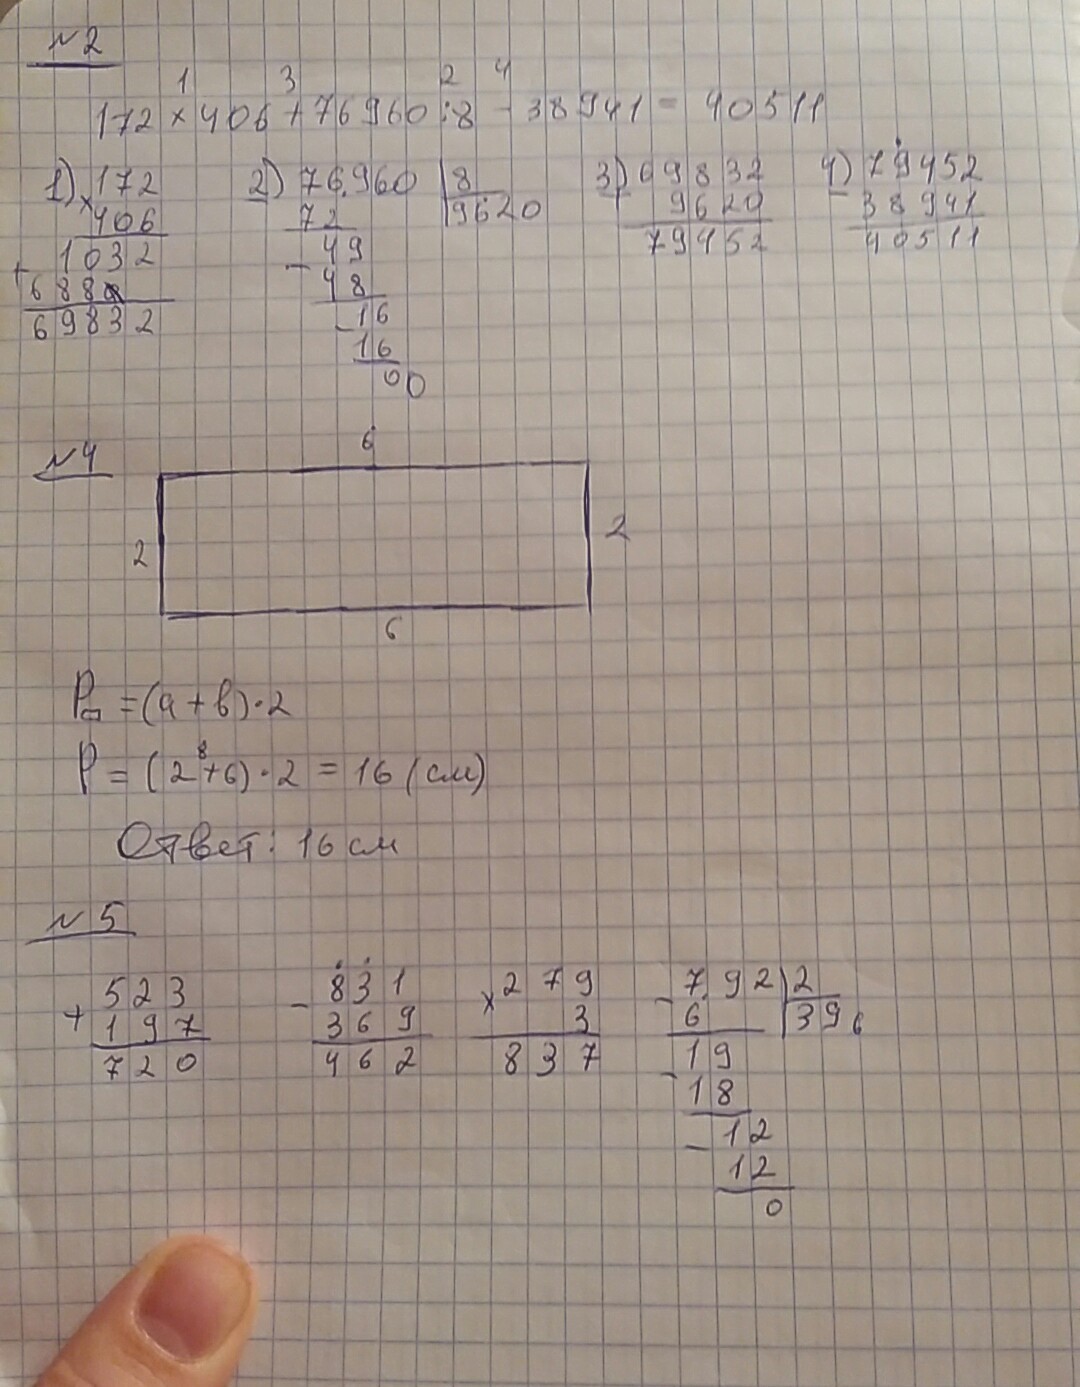 №2
1 3 2 4
172 × 406 + 76960 : 8 - 38941 = 40511
1) 172 2) 76960 8 3) 69832 4) 79452
× 406 72 9620 + 9620 - 38941
1032 - 49 79452 40511
+ 688 48
69832 - 16
16
00
№4
6
2 2
6
P▭ = (а + в) · 2
8
P = (2 + 6) · 2 = 16 (см)
Ответ: 16 см
№5
+ 523 - 831 × 279 - 792 2
197 369 3 6 396
720 462 837 19
- 18
- 12
12
0